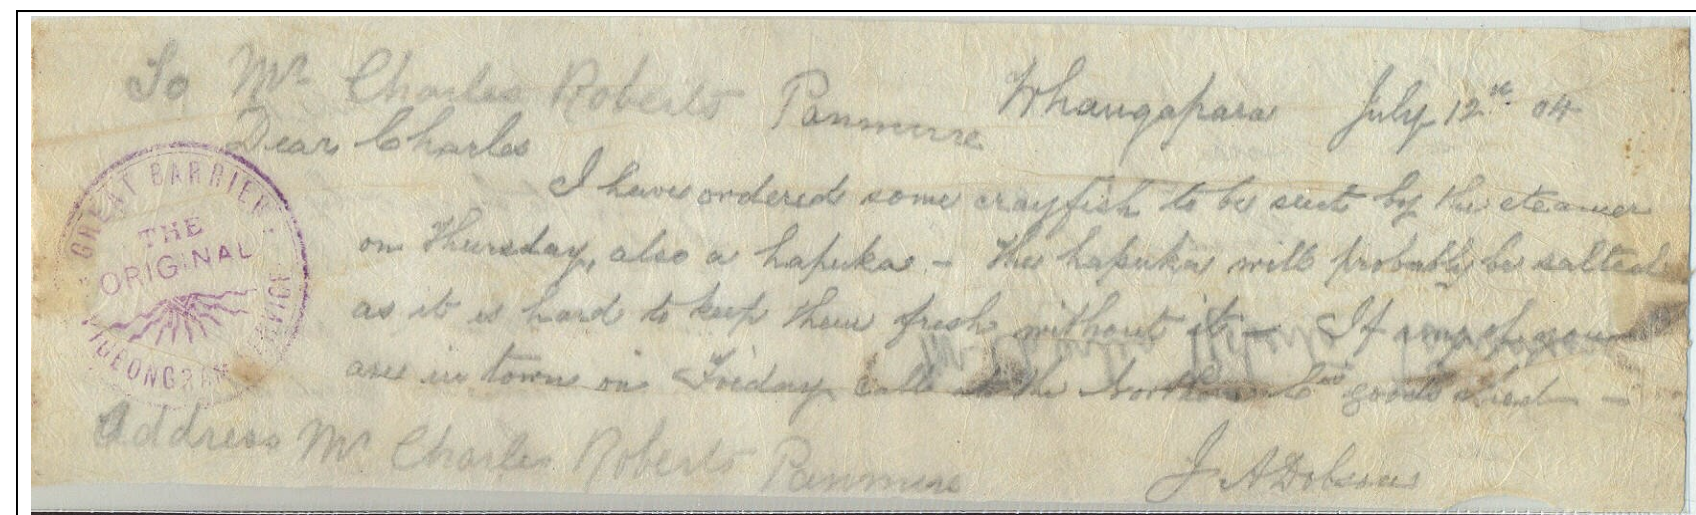 To Mr Charles Roberts Panmure Whangapara July 12th 04
Dear Charles
I have ordered some crayfish to be sent by the steamer
on Thursday, also a hapuka - The hapuka will probably be salted
as it is hard to keep them fresh without it - If any of you
are in town on Friday call at the Northern Co goods shed -
Address Mr Charles Roberts Panmure
J A Dobson
GREAT BARRIER
THE
ORIGINAL
PIGEONGRAM
SERVICE